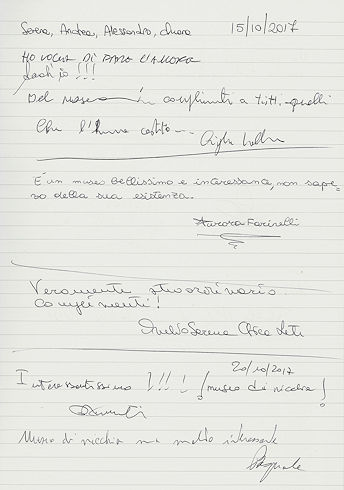 Serena, Andrea, Alessandro, chiara 15/10/2017
HO VOGLIA DI FARE L'AMORE
anch'io !!!
Bel museo complimenti a tutti quelli
che l'hanno
È un museo bellissimo e interessante, non sape-
vo della sua esistenza.
Aurora Farinelli
Veramente straordinario.
Complimenti!
20/10/2017
Interessantissimo !!! (museo di nicchia)!
Museo di nicchia ma molto interessante
Pasquale